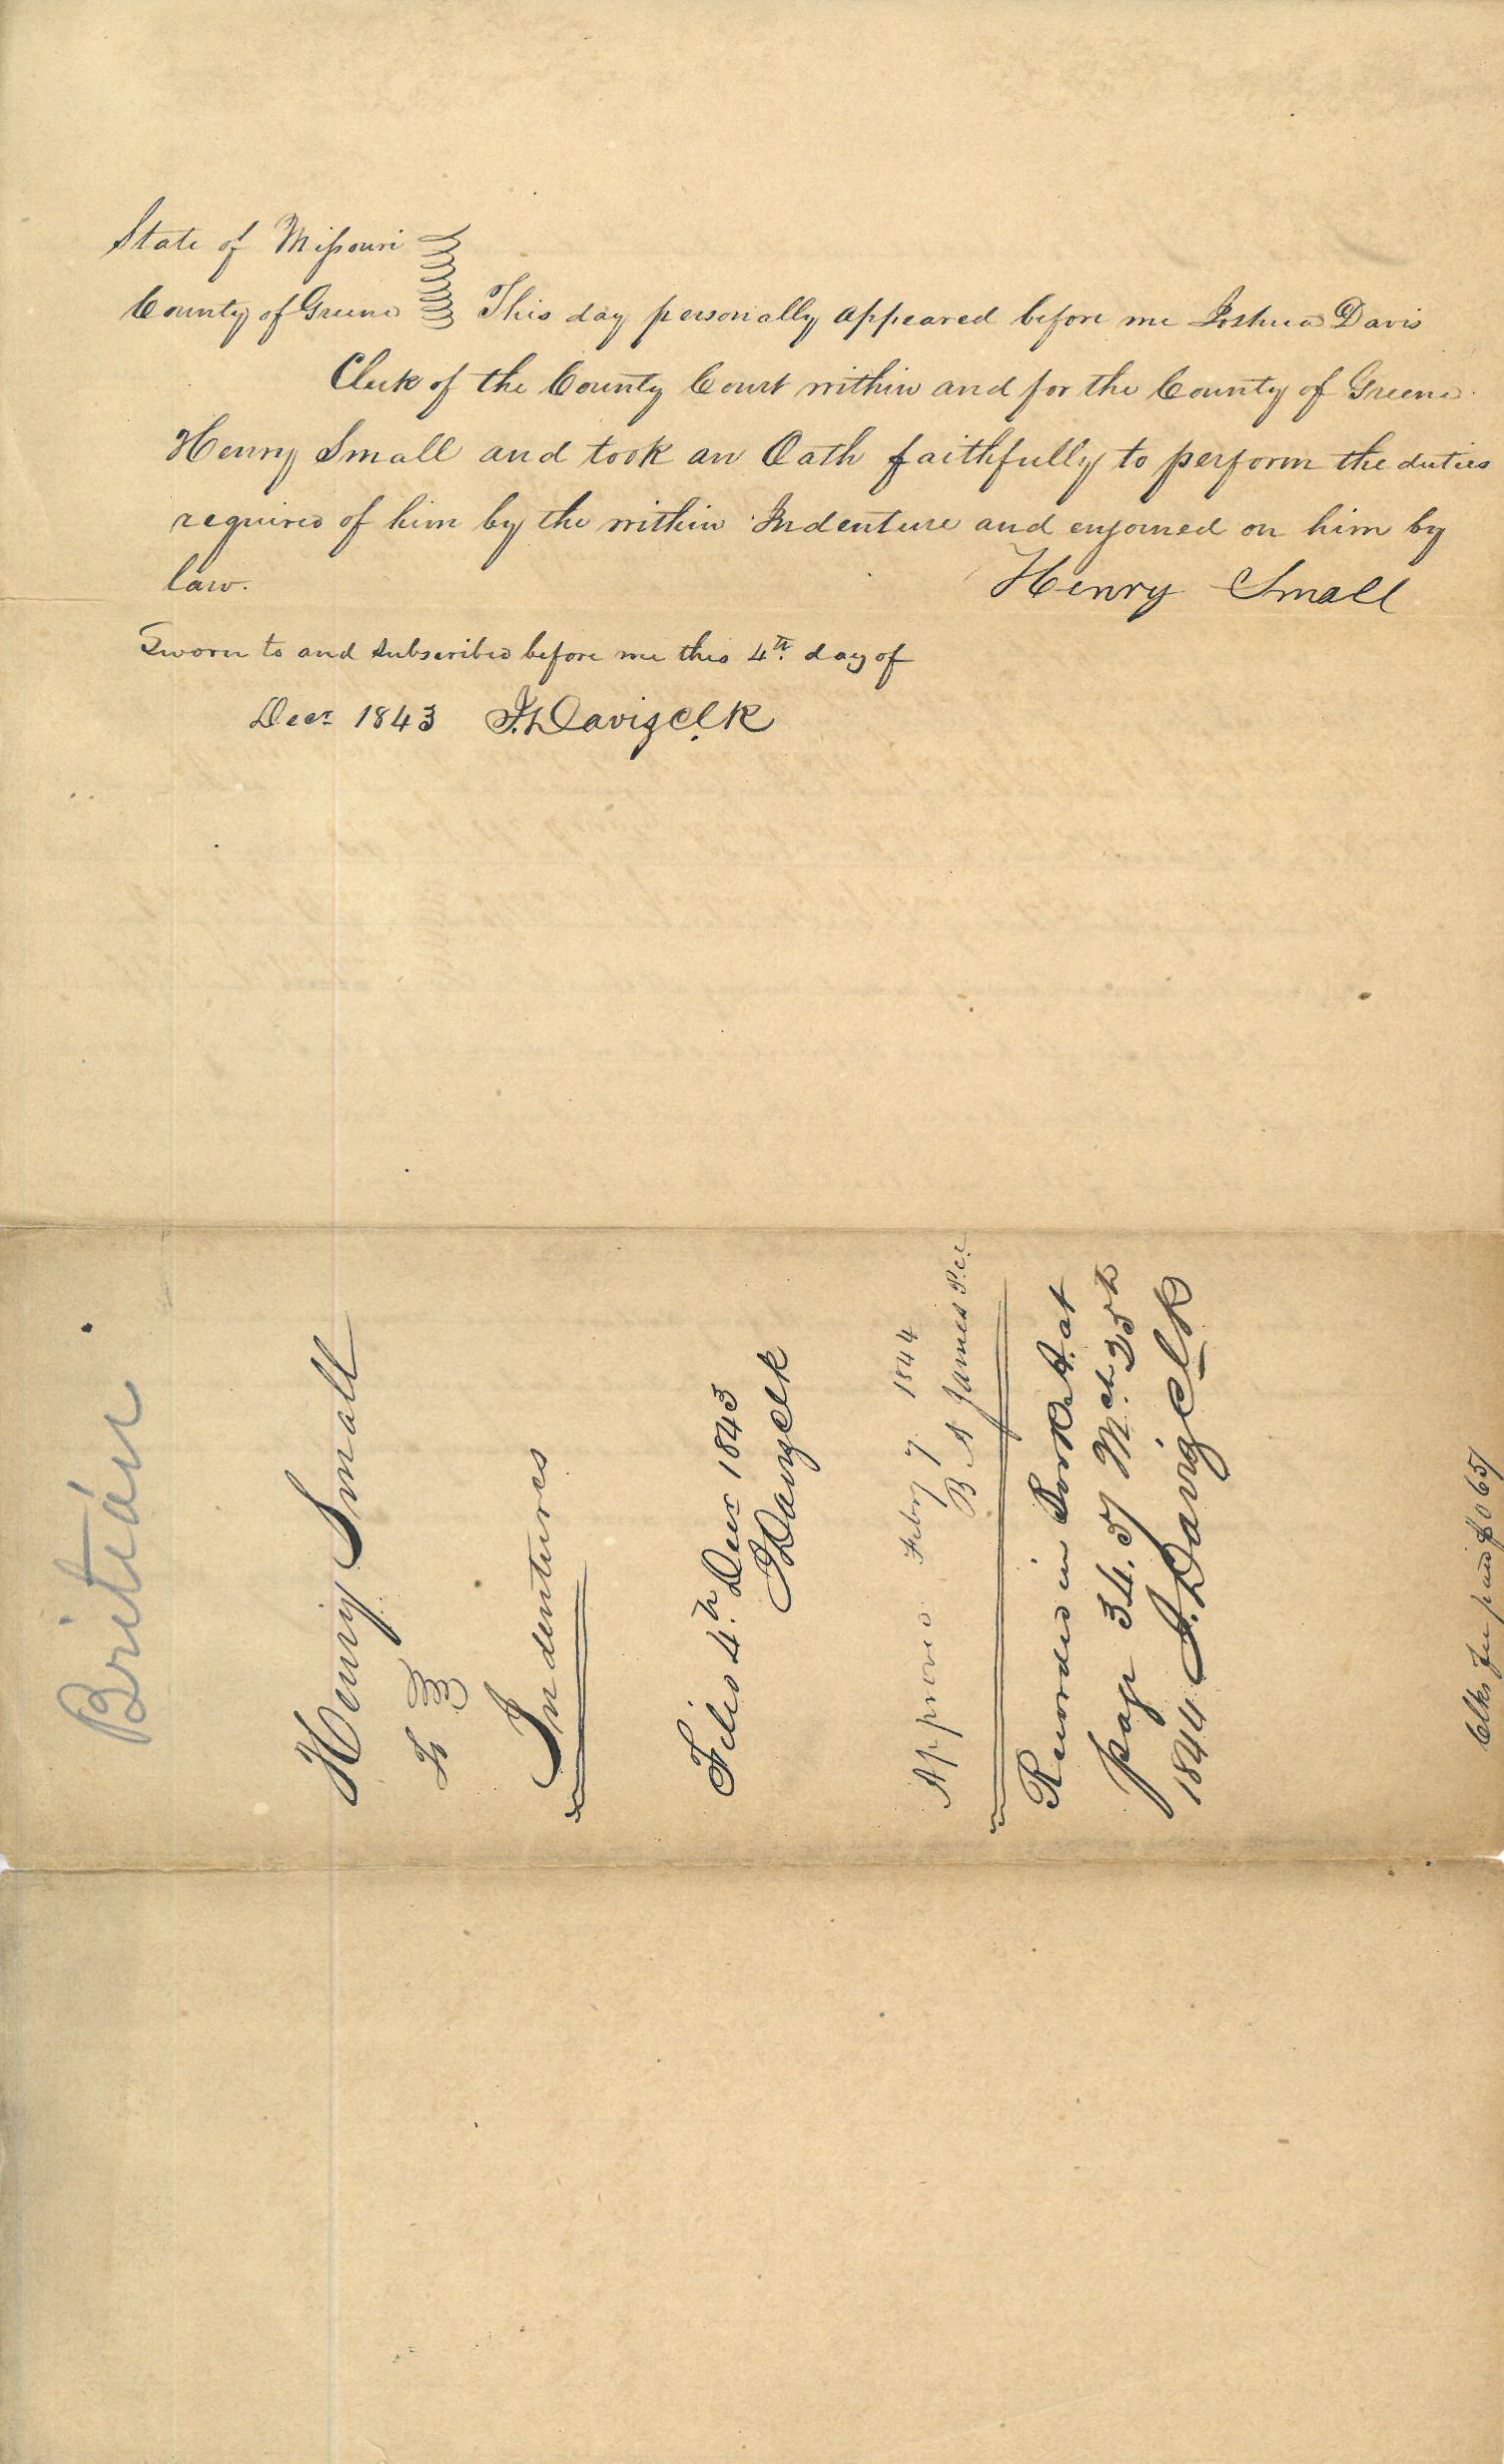 State of Missouri
County of Greene This day personally appeared before me Joshua Davis
Clerk of the County Court within and for the County of Greene
Henry Small and took an Oath faithfully to perform the duties
required of him by the within Indenture and enjoined on him by
law. Henry Small
Sworn to and subscribed before me this 4th day of
Decr 1843 J. Davis Clk
Britian
Henry Small
To
Indentures
Filed 4th Decr 1843
J Davis Clk
Approved Febry 7 1844
B A James
Recorded in Book A. at
page 34.5 Mch 25th
1844 J. Davis Clk
Clks Fee paid